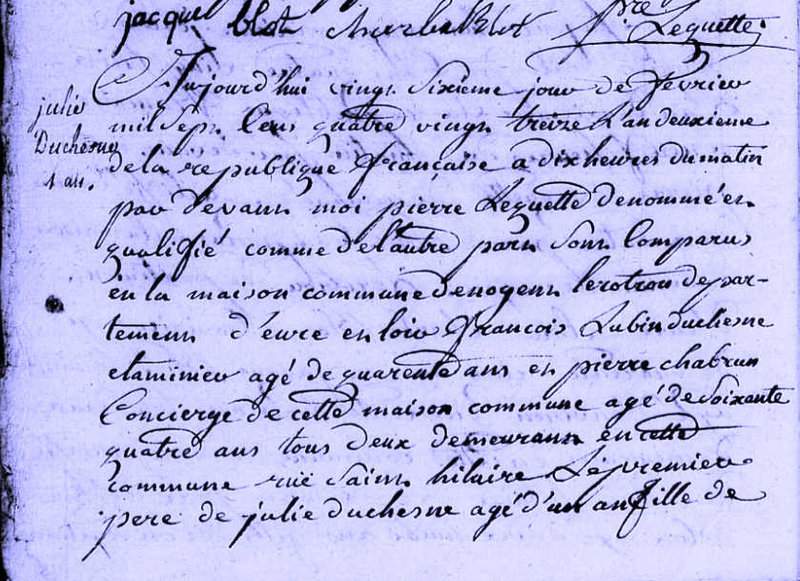 jacques blot charle Blot pre Lequette
julie
Duchesne
1 an.
Aujourd'hui vingt Sixieme jour de fevrier
mil Sept Cens quatre vingt treize L'an deuxieme
de la republique française a dix heures du matin
par devant moi pierre Lequette denommé et
qualifié comme de l'autre part Sont Comparus
en la maison commune de nogent le rotrou depar-
tement d'eure et loir françois Lubin duchesne
etaminier agé de quarente ans et pierre chabrun
Concierge de cette maison commune agé de Soixante
quatre ans tous deux demeurant en cette
commune rue Saint hilaire Le premier
pere de julie duchesne agé d'un an fille de